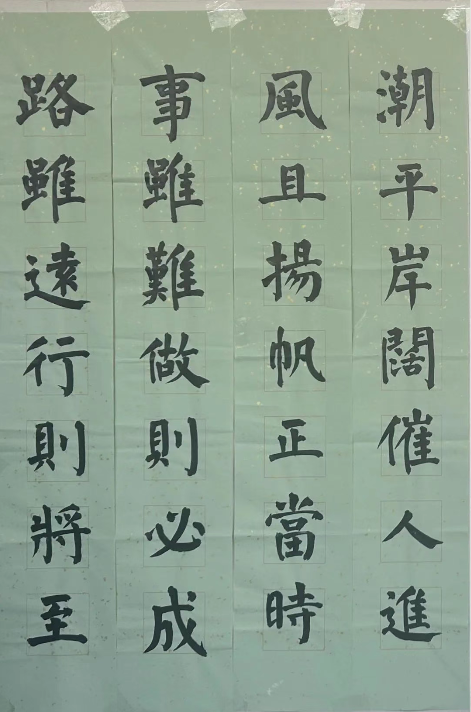 潮平岸闊催人進
風且揚帆正當時
事雖難做則必成
路雖遠行則將至